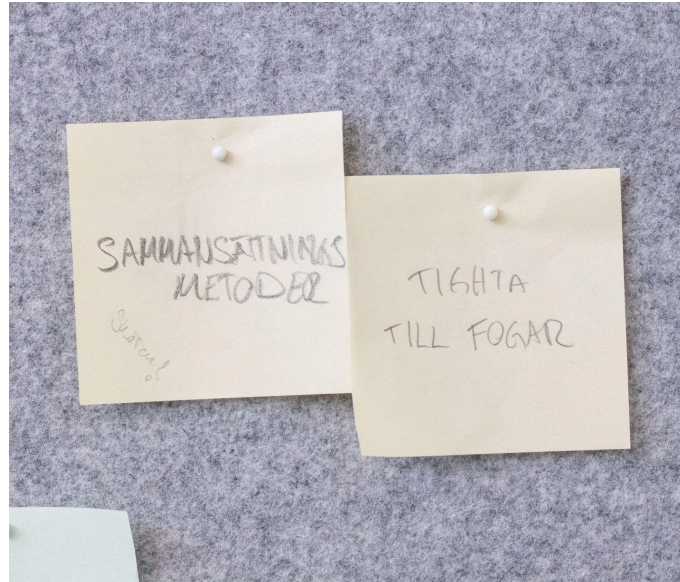 SAMMANSÄTTNINGS
METODER
TIGHTA
TILL FOGAR